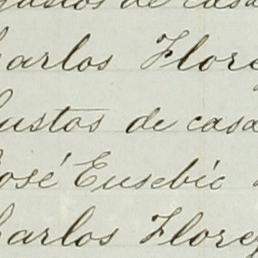 gastos de casa
harlos Flore
Gustos de casa
José Eusebio
harlos Flores